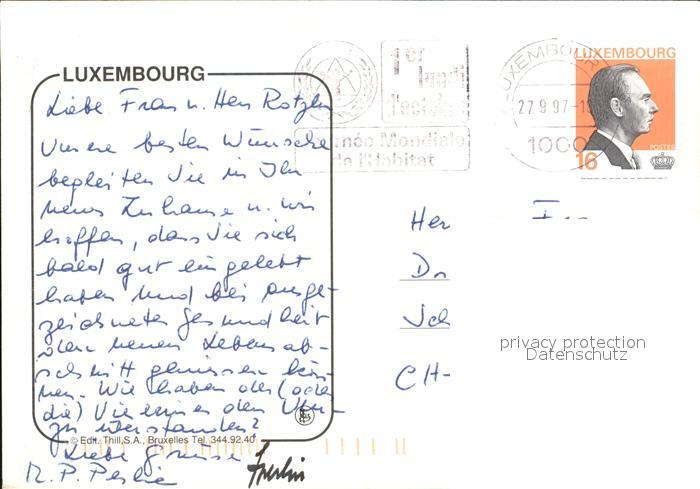 LUXEMBOURG
Liebe Frau u. Herr
Unsere besten Wünsche
begleiten Sie in Ihr
neues Zuhause u. wir
hoffen, dass Sie sich
bald gut eingelebt
haben und bei ausge-
zeichneter Gesundheit
den neuen Lebensab-
schnitt geniessen kön-
nen. Wie haben der (oder
die) Vierbeiner den Um-
zug überstanden?
© Edit. Thill, S.A., Bruxelles Tel. 344.92.40
Liebe Grüsse
1er
lundi
d'octobre
Journée Mondiale
de l'Habitat
LUXEMBOURG
27.9.97-1
1000
LUXEMBOURG
POSTES
16
Her
Dr
Sch
CH-
privacy protection
Datenschutz